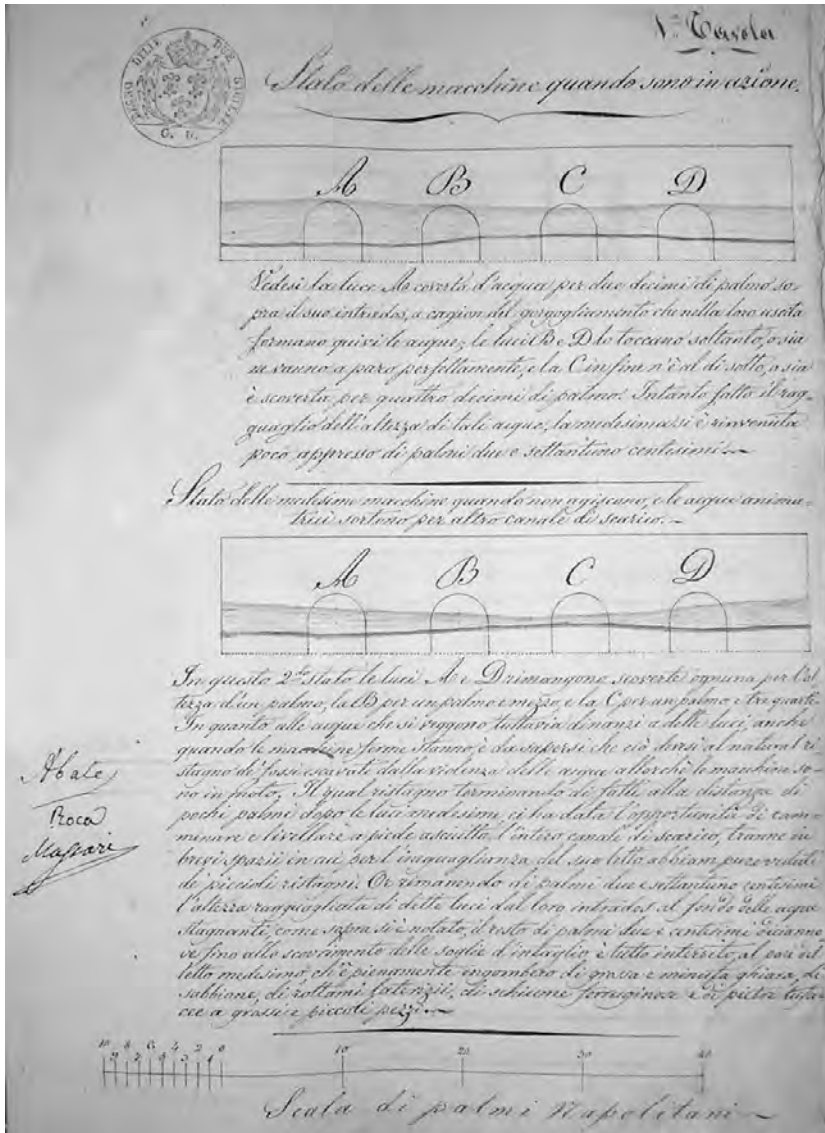 1ª Tavola
REGNO DELLE DUE SICILIE
G. 12.
Stato delle macchine quando sono in azione.
A B C D
Vedesi la luce A coverta d'acqua per due decimi di palmo so-
pra il suo intrados, a cagion del gorgogliamento che nella loro uscita
formano quivi le acque; le luci B e D lo toccano soltanto, o sia
ne vanno a paro perfettamente, e la C in fine n'è al di sotto, o sia
è scoverta per quattro decimi di palmo. Intanto fatto il rag-
guaglio dell'altezza di tali acque, la medesima si è rinvenuta
poco appresso di palmi due e settantuno centesimi.
Stato delle medesime macchine quando non agiscono, e le acque anima-
trici sortono per altro canale di scarico.
A B C D
In questo 2do stato le luci A e D rimangono scoverte ognuna per l'al-
tezza d'un palmo, la B per un palmo e mezzo, e la C per un palmo e tre quarti.
In quanto alle acque che si veggono tuttavia dinanzi a dette luci, anche
quando le macchine ferme stanno, è da sapersi che ciò devesi al natural ri-
stagno de' fossi escavati dalla violenza delle acque allorchè le macchine so-
no in moto. Il qual ristagno terminando di fatti alla distanza di
pochi palmi dopo le luci medesime, ci ha data l'opportunità di cam-
minare e livellare a piede asciutto l'intero canale di scarico, tranne in
brevi spazii in cui per l'ineguaglianza del suo letto abbiam pure veduti
de' piccioli ristagni. Or rimanendo di palmi due e settantuno centesimi
l'altezza ragguagliata di dette luci dal loro intrados al fondo delle acque
stagnanti, come sopra si è notato, il resto di palmi due e centesimi dicianno-
ve fino allo scovrimento delle soglie d'intaglio è tutto interrito al pari del
letto medesimo ch'è pienamente ingombero di grossa e minuta ghiara, di
sabbione, di rottami laterizii, di schiume ferruginose e di pietre tufa-
cee a grossi e piccoli pezzi.
Abate
Roca
Massari
10 9 8 7 6 5 4 3 2 1 0 10 20 30 40
Scala di palmi Napolitani